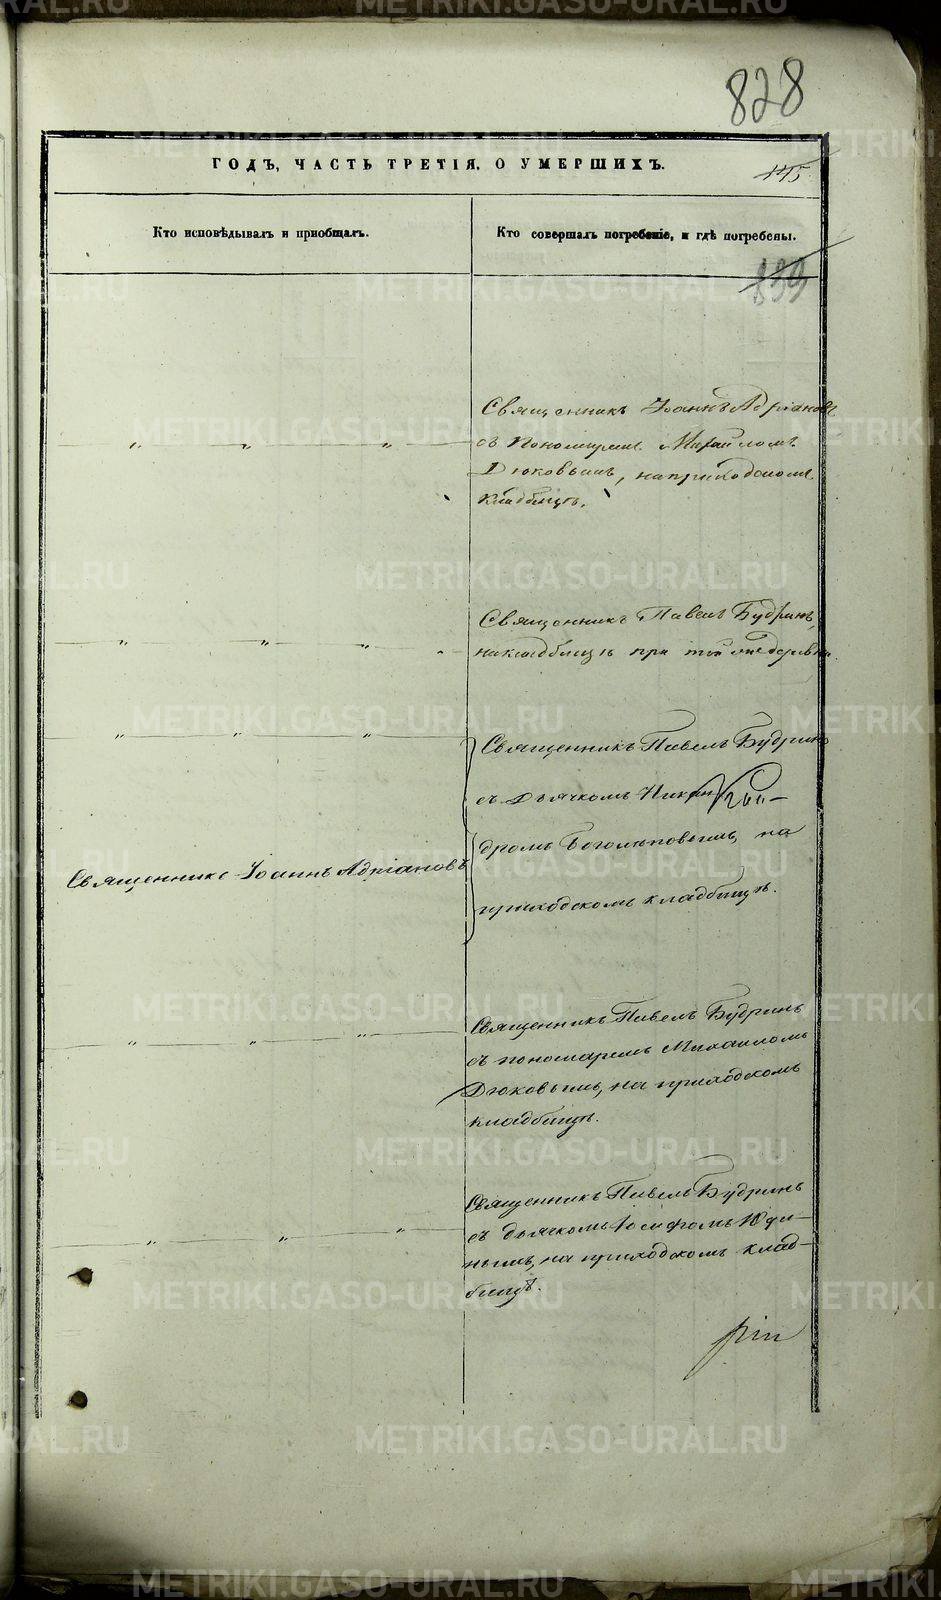 828
ГОДЪ, ЧАСТЬ ТРЕТІЯ, О УМЕРШИХЪ.
145
Кто исповѣдывалъ и пріобщалъ.
Кто совершалъ погребеніе, и гдѣ погребены.
839
Священникъ Іоаннъ Адріановъ
съ Пономаремъ Михаиломъ
Дюковымъ, на приходскомъ
кладбищѣ.
Священникъ Павелъ Будринъ,
на кладбищѣ при той же деревни.
Священникъ Павелъ Будринъ
съ Дьячкомъ Никан
дромъ Боголѣповымъ, на
приходскомъ кладбищѣ.
Священникъ Іоаннъ Адріановъ
Священникъ Павелъ Будринъ
съ пономаремъ Михаиломъ
Дюковымъ, на приходскомъ
кладбищѣ.
Священникъ Павелъ Будринъ
съ дьячкомъ Іосифомъ Юди-
нымъ, на приходскомъ клад-
бищѣ.
METRIKI.GASO-URAL.RU